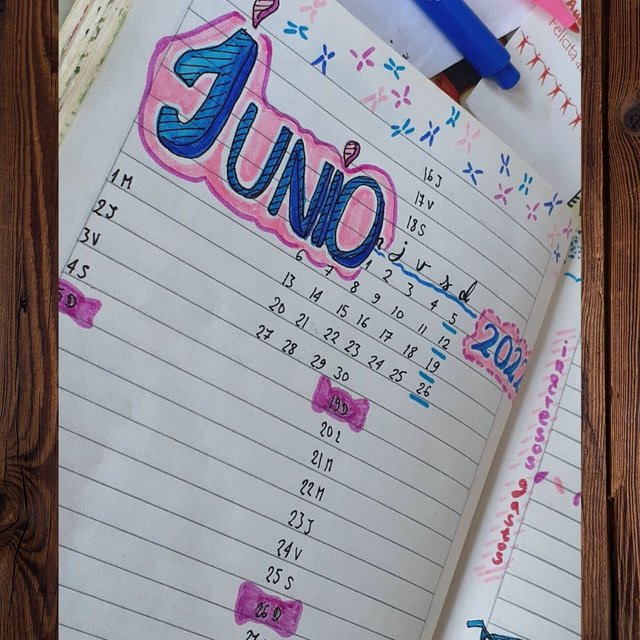 JUNIO
1 M
2 J
3 V
4 S
5 D
16 J
17 V
18 S
j v s d
1 2 3 4 5
6 7 8 9 10 11 12
13 14 15 16 17 18 19
20 21 22 23 24 25 26
27 28 29 30
19 D
20 L
21 M
22 M
23 J
24 V
25 S
26 D